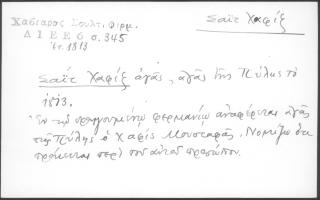 Χασιαρος Σουλτ. Φιρμ.
Δ Ι Ε Ε 6 σ. 345
έτ. 1813
Σαΐτ Χαφίζ
Σαΐτ Χαφίζ ἀγᾶς, ἀγᾶς τῆς Πύλης τὸ
1813.
Ἐν τῷ προηγουμένῳ φερμανίῳ ἀναφέρεται ἀγᾶς
τῆς Πύλης ὁ Χαφίς Μουσταφᾶς. Νομίζω ὅτι
πρόκειται περὶ τοῦ αὐτοῦ προσώπου.